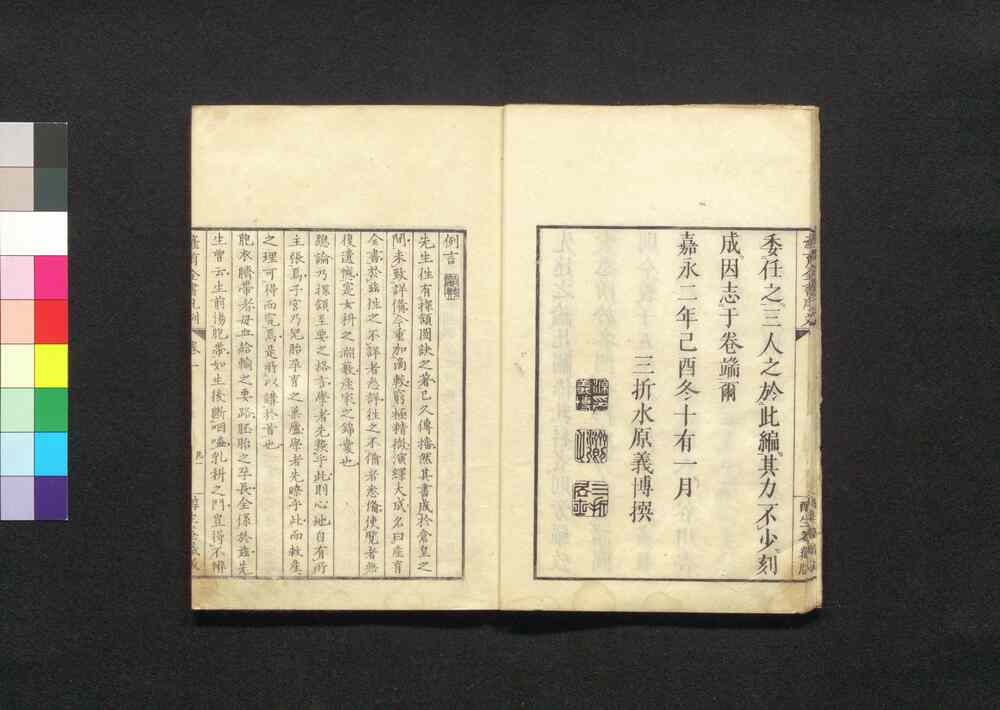 委任之三人之於此編其力不少刻
成因志于卷端爾
嘉永二年己酉冬十有一月
三折水原義博撰
例言
先生往有探頷圖訣之著已久傳播然其書成於倉皇之
間未致詳備今重加商較窮極精微演繹大成名曰產育
全書於玆往之不詳者悉詳往之不備者悉備使覧者無
後遺憾寔女科之淵藪產家之錦囊也
總論乃探頷至要之格言學者先熟乎此則心地自有所
主張焉子宮乃兒胎孕育之藁廬學者先瞭乎此而救產
之理可得而究焉是所以講於首也
胞衣臍帶者母血給輸之要路胚胎之孕長全係於玆先
生曾云生前湯胞帶如生後斷咽嗌乳科之門豈得不辨